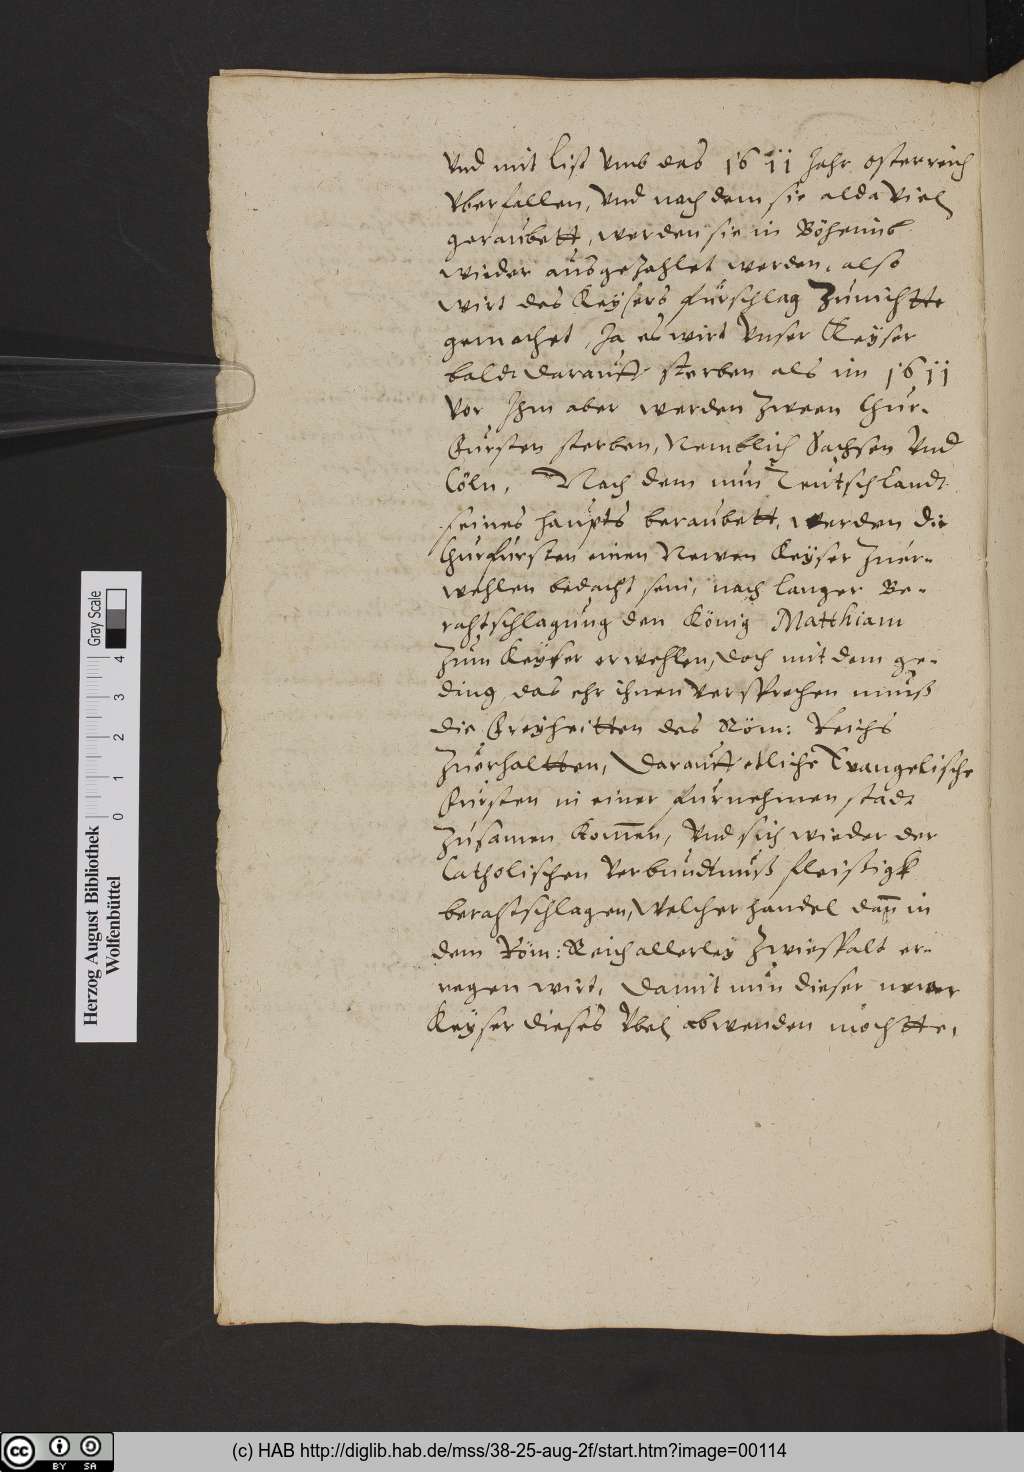 Vnd mit list Vmb das 1611 Jahr osterreich
Vberfallen, Vnd nach dem sie alda Viel
geraubett, werden sie in Böhemib
wieder ausgezahlet werden, also
wirt des Keysers fürschlag Zunichtte
gemachet, Ja es wirt Vnser Keÿser
baldt darauff sterben als im 1611
Vor Ihm aber werden Zween Chur-
Fursten sterben, Nemblich Sachsen Vnd
Cöln, Nach dem nun Teutschlandt
seines haupts beraubett, werden die
Churfürsten einen Newen Keÿser Zuer-
wehlen bedacht sein, nach langer Be-
rahtschlagung den König Matthiam
Zum Keÿser erwehlen, doch mit dem ge-
ding das ehr ihnen Versprechen muß
die Freyheitten des Röm: Reichs
Zuerhaltten, darauff etliche Evangelische
Fursten in einer furnehmen stadt
Zusamen Kom̄en, Vnd sich wieder der
Catholischen Verbundtnuß fleissigk
berahtschlagen, Welcher handel dan̄ in
dem Röm: Reich allerleÿ Zwiespalt er-
regen wirt, damit nun dieser newer
Keyser dieses Vbel abwenden mochtte,
Herzog August Bibliothek
Wolfenbüttel
0 1 2 3 4
Gray Scale
cc BY SA
(c) HAB http://diglib.hab.de/mss/38-25-aug-2f/start.htm?image=00114